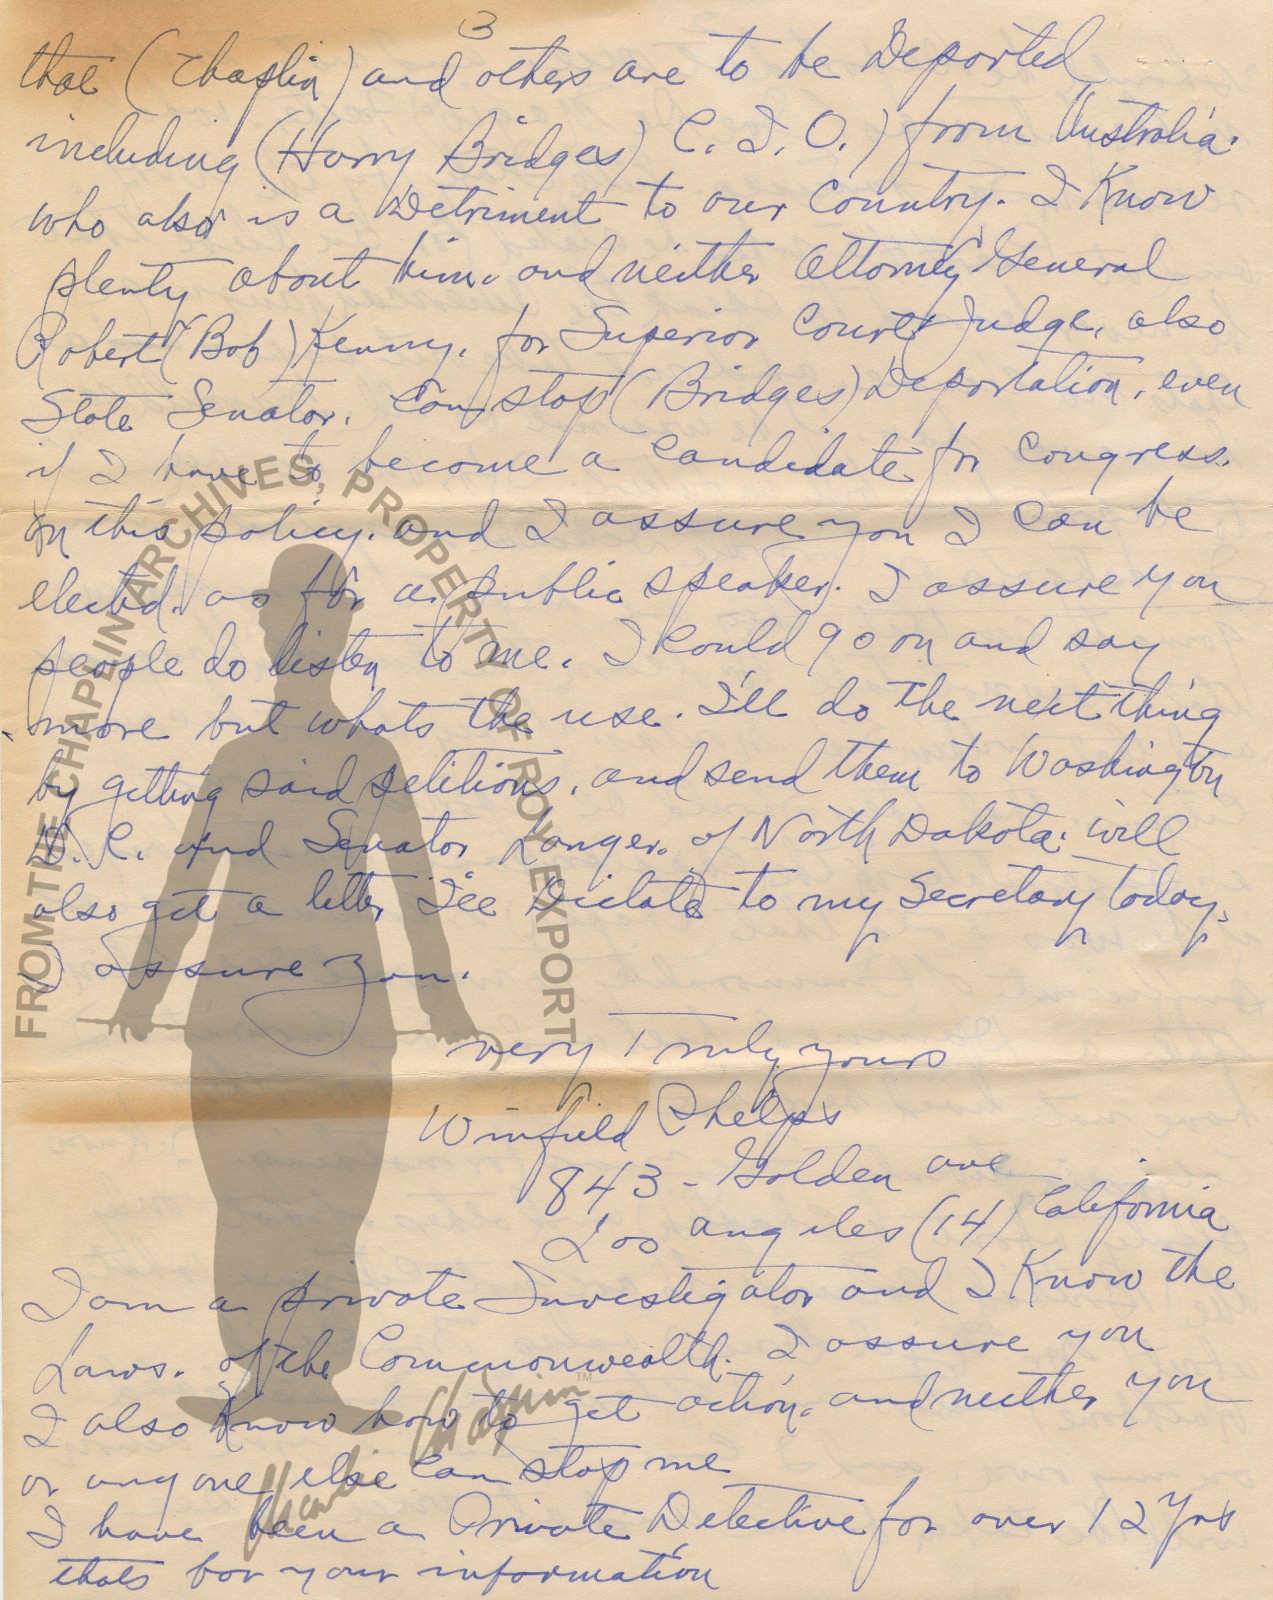 3
that (Chaplin) and others are to be Deported
including (Harry Bridges) C. I. O.) from Australia.
who also is a Detriment to our Country. I Know
plenty about him. and neither Attorney General
Robert (Bob) Kenny. for Superior Court Judge. also
State Senator. Can stop (Bridges) Deportation. even
if I have to become a Candidate for Congress.
on this policy. and I assure you I Can be
elected. as for a public speaker. I assure you
people do listen to me. I Could go on and say
more but whats the use. I'll do the next thing
by getting said petitions. and send them to Washington
D. C. and Senator Langer. of North Dakota. will
also get a letter I'll Dictate to my Secretary today.
I assure you.
very Truly yours
Winfield Phelps
843 - Golden ave
Los Angeles (14) California
I am a private Investigator and I Know the
Laws. of the Commonwealth. I assure you
I also Know how to get action. and neither you
or anyone else Can stop me
I have been a Private Detective for over 12 Yrs
thats for your information
FROM THE CHAPLIN ARCHIVES, PROPERTY OF ROY EXPORT
Charlie Chaplin™